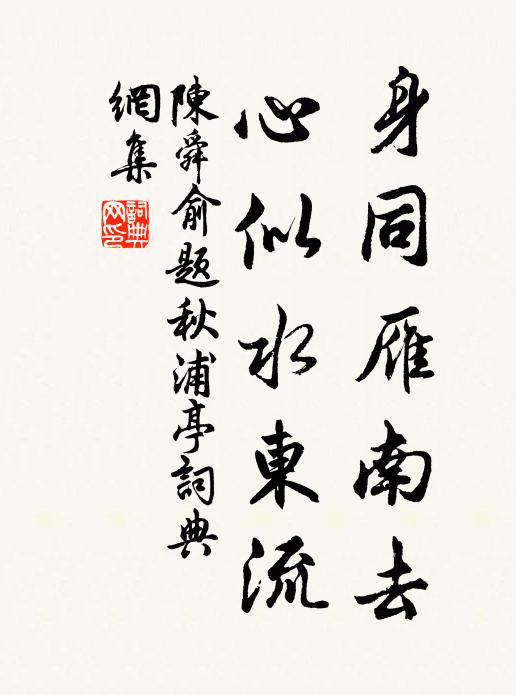 身同雁南去
心似水東流
陳舜俞题秋浦亭詞典
網集
詞典網印